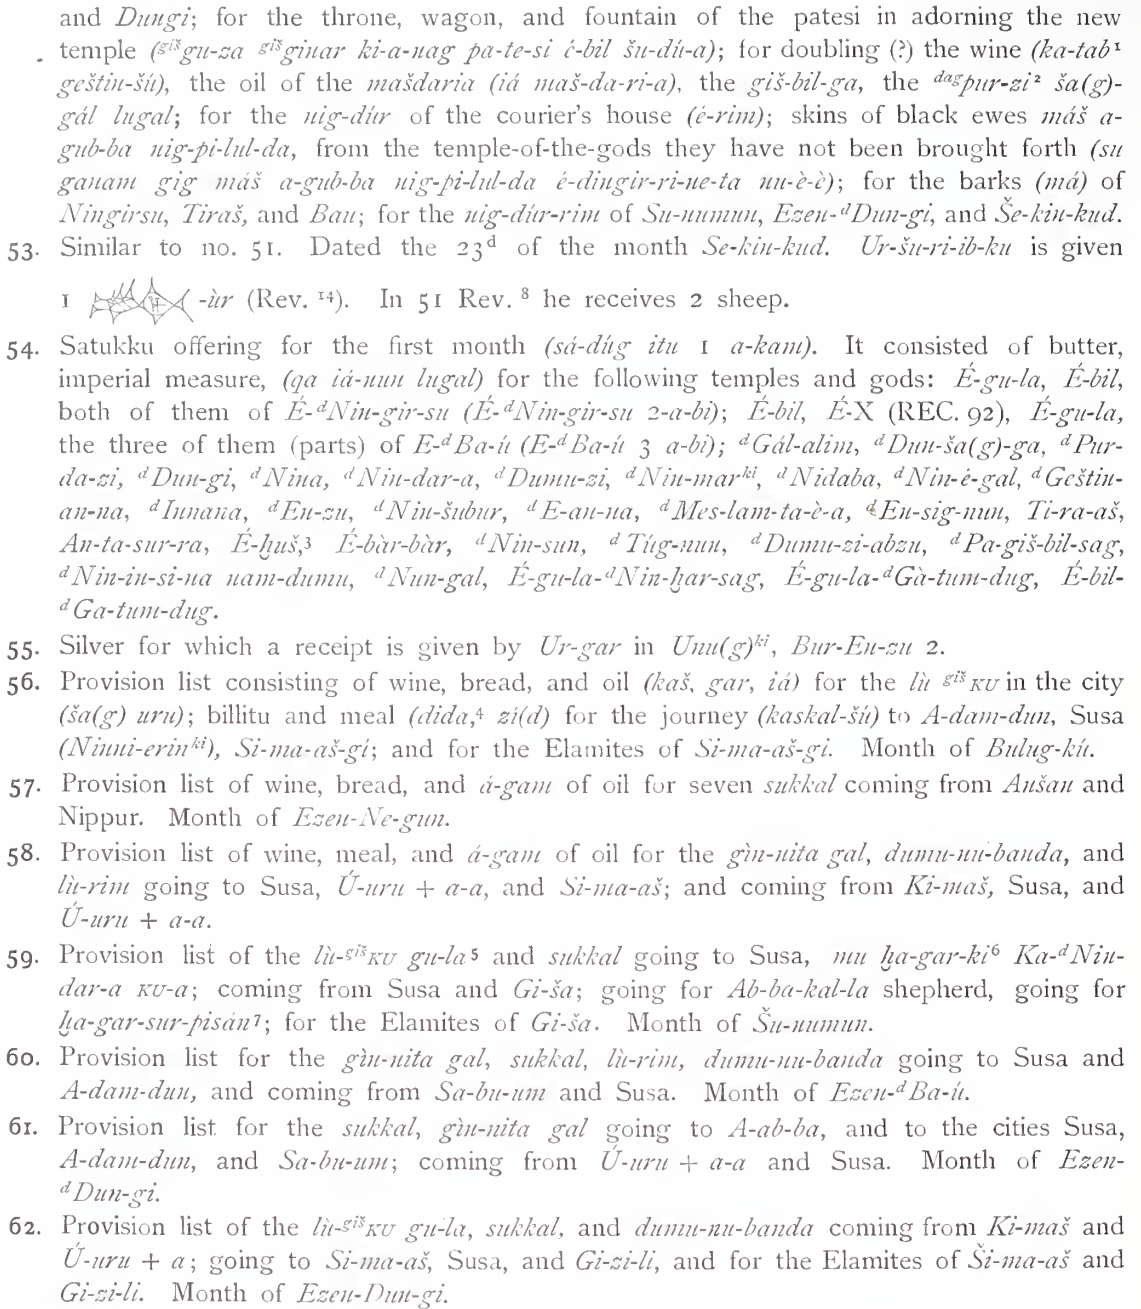 and Dungi; for the throne, wagon, and fountain of the patesi in adorning the new
temple (gišgu-za gišginar ki-a-nag pa-te-si é-bil šu-dú-a); for doubling (?) the wine (ka-tab¹
geštin-šú), the oil of the mašdaria (iá maš-da-ri-a), the giš-bil-ga, the dagpur-zi² ša(g)-
gál lugal; for the nig-dúr of the courier's house (é-rim); skins of black ewes máš a-
gub-ba nig-pi-lul-da, from the temple-of-the-gods they have not been brought forth (su
ganam gig máš a-gub-ba nig-pi-lul-da é-dingir-ri-ne-ta nu-è-è); for the barks (má) of
Ningirsu, Tiraš, and Bau; for the nig-dúr-rim of Su-numun, Ezen-ᵈDun-gi, and Še-kin-kud.
53. Similar to no. 51. Dated the 23ᵈ of the month Se-kin-kud. Ur-šu-ri-ib-ku is given
1 -ùr (Rev. ¹⁴). In 51 Rev. ⁸ he receives 2 sheep.
54. Satukku offering for the first month (sá-dúg itu 1 a-kam). It consisted of butter,
imperial measure, (qa iá-nun lugal) for the following temples and gods: É-gu-la, É-bil,
both of them of É-ᵈNin-gir-su (É-ᵈNin-gir-su 2-a-bi); É-bil, É-X (REC. 92), É-gu-la,
the three of them (parts) of E-ᵈBa-ú (E-ᵈBa-ú 3 a-bi); ᵈGál-alim, ᵈDun-ša(g)-ga, ᵈPur-
da-zi, ᵈDun-gi, ᵈNina, ᵈNin-dar-a, ᵈDumu-zi, ᵈNin-marᵏⁱ, ᵈNidaba, ᵈNin-é-gal, ᵈGeštin-
an-na, ᵈInnana, ᵈEn-zu, ᵈNin-šubur, ᵈE-an-na, ᵈMes-lam-ta-è-a, ᵈEn-sig-nun, Ti-ra-aš,
An-ta-sur-ra, É-ḫuš,³ É-bàr-bàr, ᵈNin-sun, ᵈTúg-nun, ᵈDumu-zi-abzu, ᵈPa-giš-bil-sag,
ᵈNin-in-si-na nam-dumu, ᵈNun-gal, É-gu-la-ᵈNin-ḫar-sag, É-gu-la-ᵈGà-tum-dug, É-bil-
ᵈGa-tum-dug.
55. Silver for which a receipt is given by Ur-gar in Unu(g)ᵏⁱ, Bur-En-zu 2.
56. Provision list consisting of wine, bread, and oil (kaš, gar, iá) for the lù gišKU in the city
(ša(g) uru); billitu and meal (dida,⁴ zi(d) for the journey (kaskal-šú) to A-dam-dun, Susa
(Ninni-erinᵏⁱ), Si-ma-aš-gí; and for the Elamites of Si-ma-aš-gi. Month of Bulug-kú.
57. Provision list of wine, bread, and á-gam of oil for seven sukkal coming from Anšan and
Nippur. Month of Ezen-Ne-gun.
58. Provision list of wine, meal, and á-gam of oil for the gìn-nita gal, dumu-nu-banda, and
lù-rim going to Susa, Ú-uru + a-a, and Si-ma-aš; and coming from Ki-maš, Susa, and
Ú-uru + a-a.
59. Provision list of the lù-gišKU gu-la⁵ and sukkal going to Susa, mu ḫa-gar-ki⁶ Ka-ᵈNin-
dar-a KU-a; coming from Susa and Gi-ša; going for Ab-ba-kal-la shepherd, going for
ḫa-gar-sur-pisán⁷; for the Elamites of Gi-ša. Month of Šu-numun.
60. Provision list for the gìn-nita gal, sukkal, lù-rim, dumu-nu-banda going to Susa and
A-dam-dun, and coming from Sa-bu-um and Susa. Month of Ezen-ᵈBa-ú.
61. Provision list for the sukkal, gìn-nita gal going to A-ab-ba, and to the cities Susa,
A-dam-dun, and Sa-bu-um; coming from Ú-uru + a-a and Susa. Month of Ezen-
ᵈDun-gi.
62. Provision list of the lù-gišKU gu-la, sukkal, and dumu-nu-banda coming from Ki-maš and
Ú-uru + a; going to Si-ma-aš, Susa, and Gi-zi-li, and for the Elamites of Ši-ma-aš and
Gi-zi-li. Month of Ezen-Dun-gi.